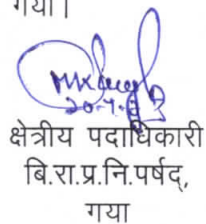 गया।
क्षेत्रीय पदाधिकारी
बि.रा.प्र.नि.पर्षद्,
गया